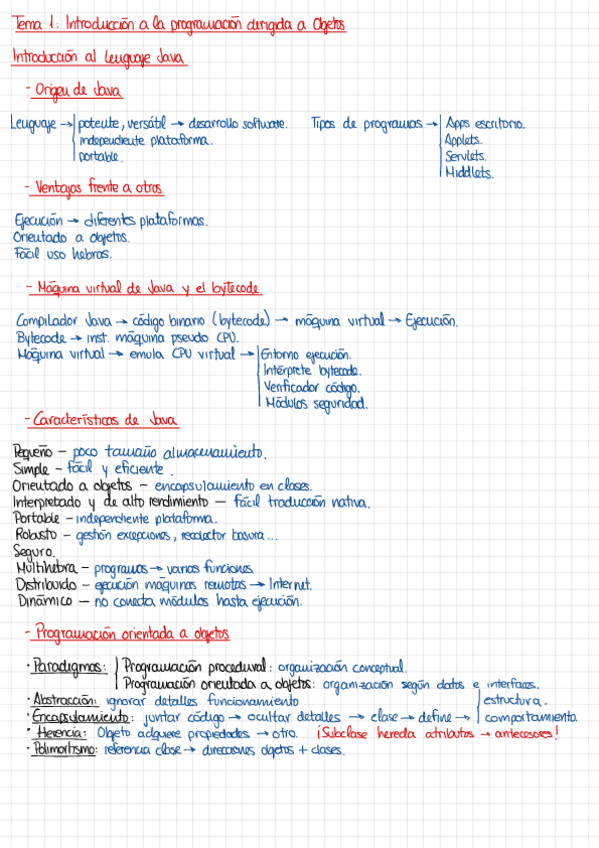 Tema 1: Introducción a la programación dirigida a Objetos
Introducción al lenguaje Java
- Origen de Java
Lenguaje → potente, versátil → desarrollo software. Tipos de programas → Apps escritorio.
independiente plataforma. Applets.
portable. Servlets.
Middlets.
- Ventajas frente a otros
Ejecución → diferentes plataformas.
Orientado a objetos.
Fácil uso hebras.
- Máquina virtual de Java y el bytecode
Compilador Java → código binario (bytecode) → máquina virtual → Ejecución.
Bytecode → inst. máquina pseudo CPU.
Máquina virtual → emula CPU virtual → Entorno ejecución.
Intérprete bytecode.
Verificador código.
Módulos seguridad.
- Características de Java
Pequeño – poco tamaño almacenamiento.
Simple – fácil y eficiente.
Orientado a objetos – encapsulamiento en clases.
Interpretado y de alto rendimiento – fácil traducción nativa.
Portable – independiente plataforma.
Robusto – gestión excepciones, recolector basura...
Seguro.
Multihebra – programas → varias funciones.
Distribuido – ejecución máquinas remotas → Internet.
Dinámico – no conecta módulos hasta ejecución.
- Programación orientada a objetos
· Paradigmas: Programación procedural: organización conceptual.
Programación orientada a objetos: organización según datos e interfaces.
· Abstracción: ignorar detalles funcionamiento estructura.
· Encapsulamiento: juntar código → ocultar detalles → clase → define → comportamiento.
· Herencia: Objeto adquiere propiedades → otro. ¡Subclase hereda atributos → antecesores!
· Polimorfismo: referencia clase → direcciones objetos + clases.